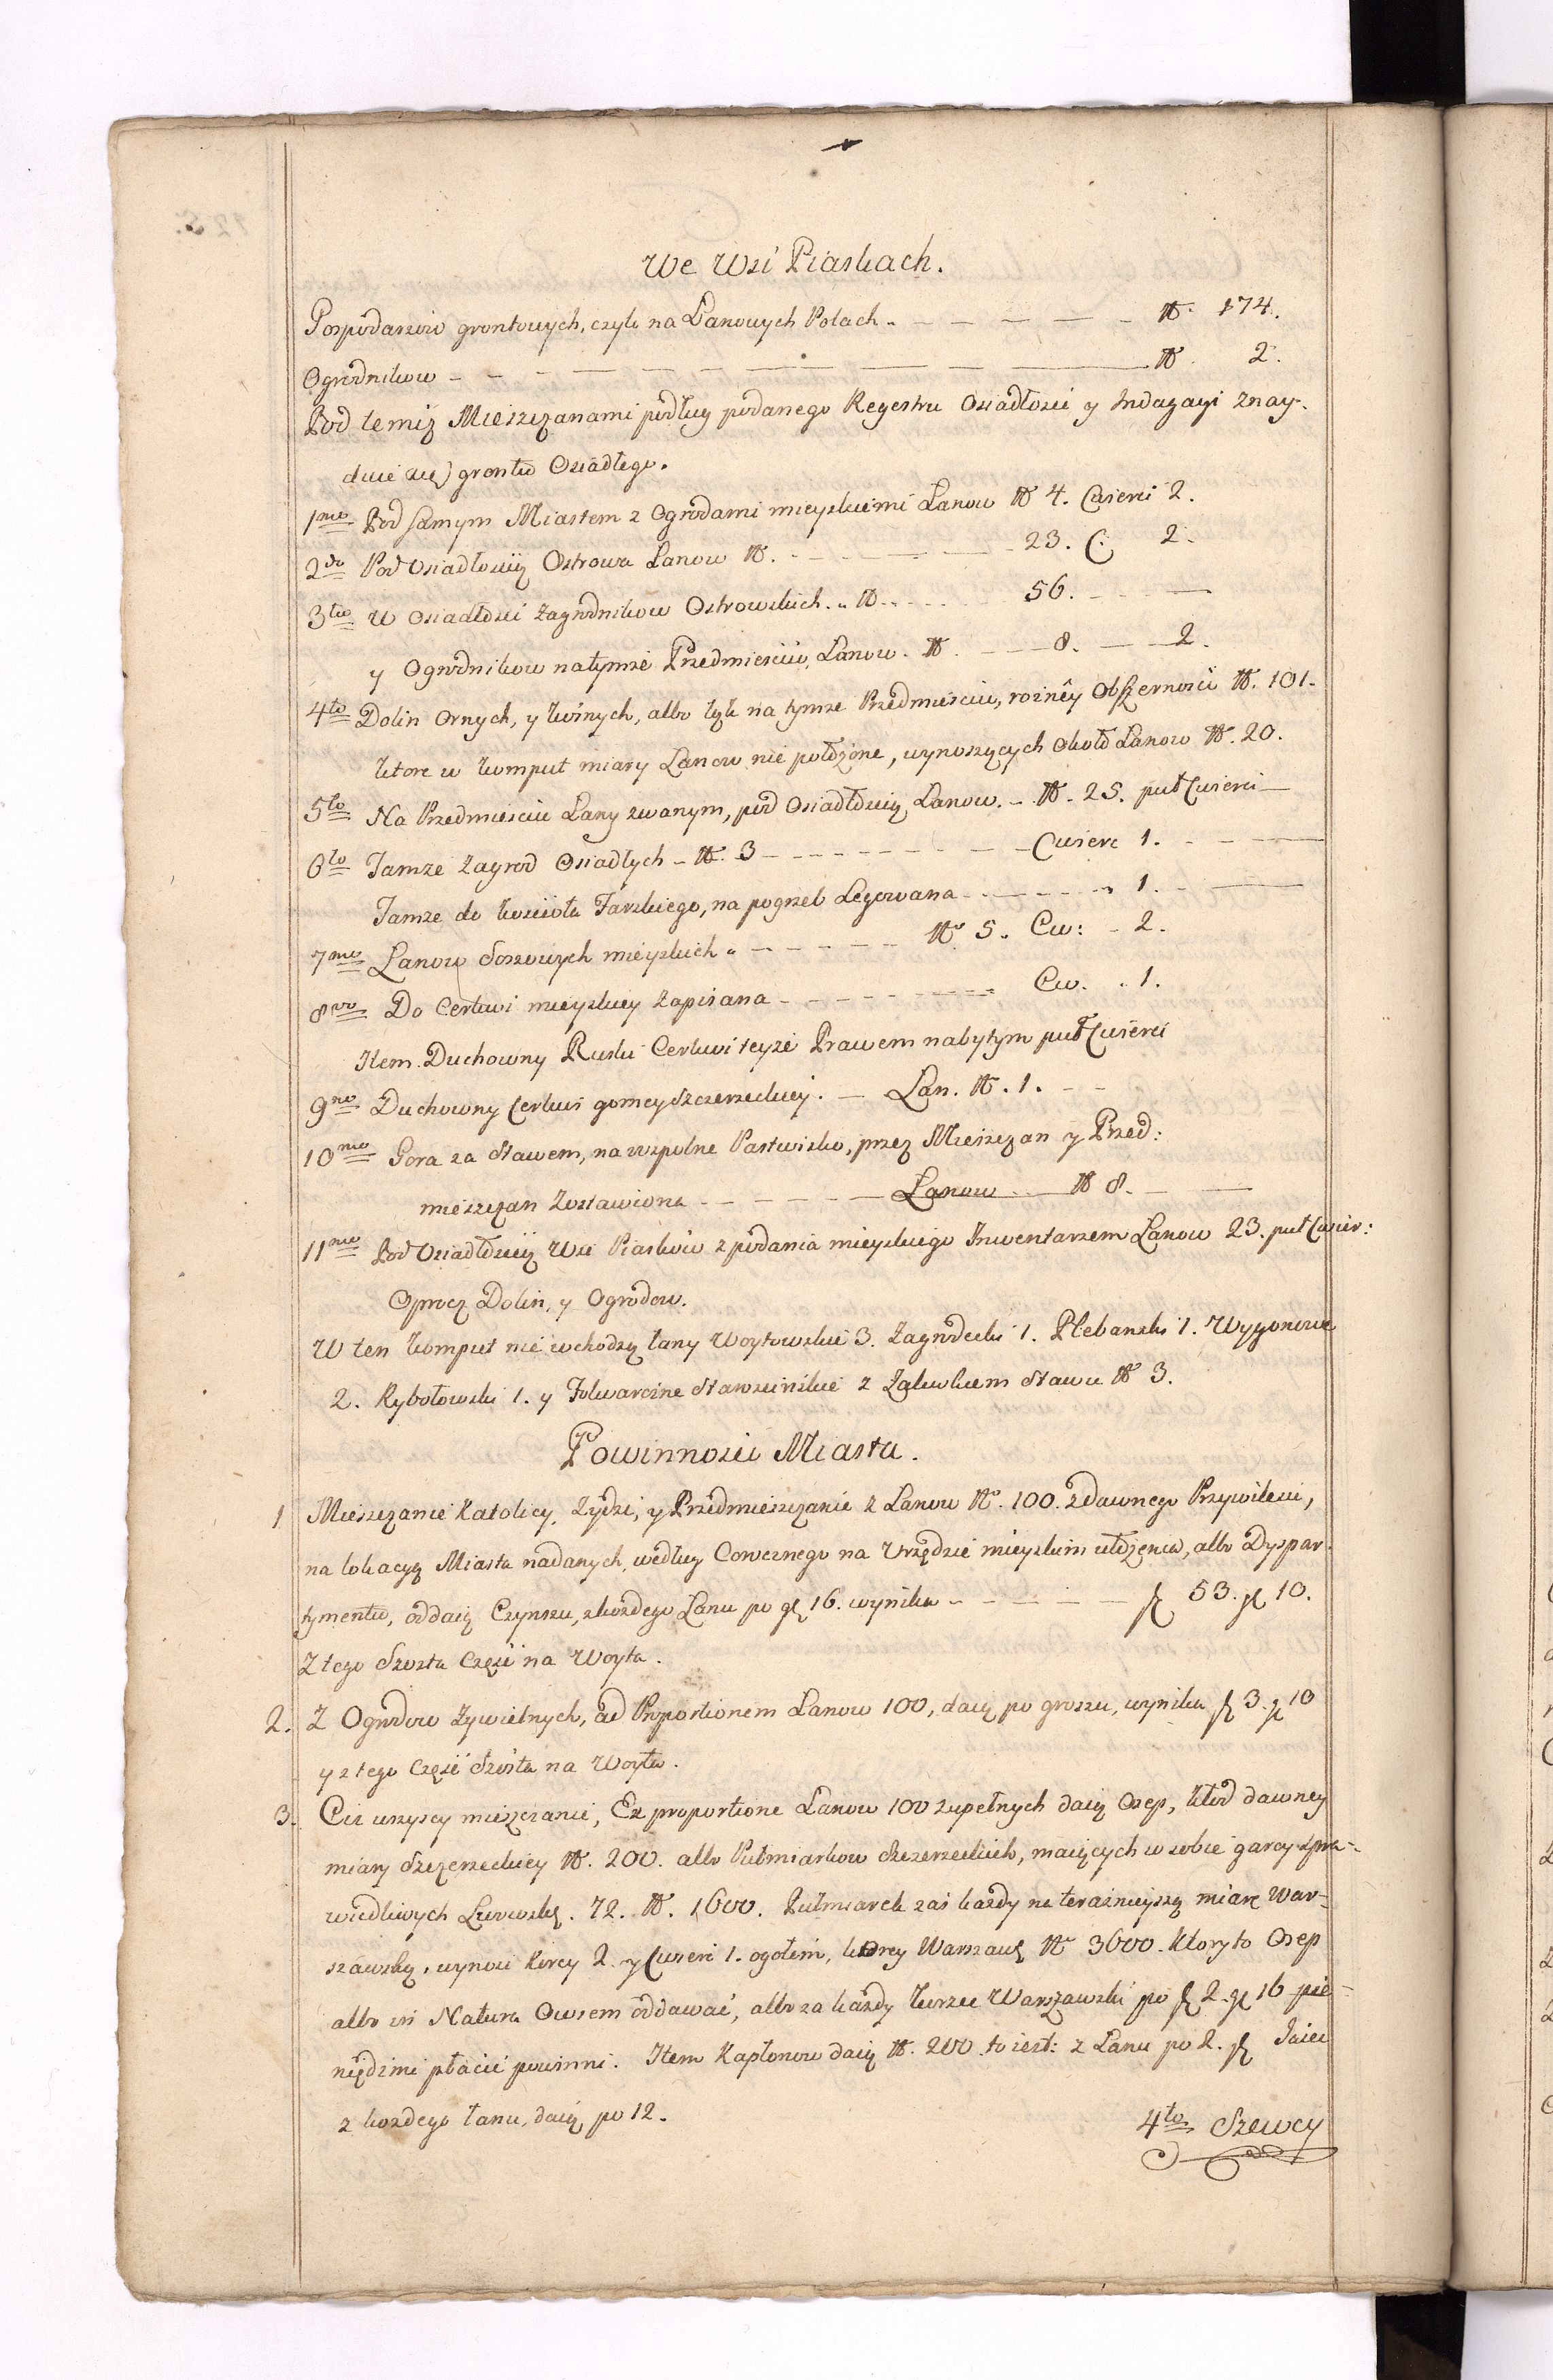 We Wsi Piaskach.
Gospodarzow grontowych, czyli na Łanowych Polach . – – – – – N. 174.
Ogrodnikow – – – – – – – N. 2.
Pod temiż Mieszczanami podług podanego Regestru Osiadłosci y Indagacyi znay-
duie się gronta Osiadłego.
1mo Pod samym Miastem z Ogrodami mieyskiemi Łanow N 4. Cwierci 2.
2do Pod Osiadłością Ostrowa Łanow N. – – – 23. C: 2.
3tio W Osiadłosci Zagrodnikow Ostrowskich . . N. . . . 56. – –
y Ogrodnikow natymże Przedmiesciu, Łanow. N. – – 8. – 2.
4to Dolin Ornych, y kośnych, albo łąk na tymże Przedmiesciu, rożnêy Obszernosci N. 101.
ktore w komput miary Łanow nie położone, wynoszących około Łanow N. 20.
5to Na Przedmiesciu Łany zwanym, pod Osiadłością Łanow. – N. 25. puł Cwierci –
6to Tamże Zagrod Osiadłych – N. 3 – – – – – – Cwierc 1. – –
Tamże do koscioła Farskiego, na pogrzeb Legowana – – – – " 1. –
7mo Łanow Soszowych mieyskich . – – – – – No 5. Cw: – 2.
8vo Do Cerkwi mieyskiey Zapisana – – – – – – Cw. . 1.
Item. Duchowny Ruski Cerkwi teyże Prawem nabytym puł Cwierci
9no Duchowny Cerkwi gorney Szczerzeckiey. – Łan. N. 1. – –
10mo Gora za Stawem, na wspolne Pastwisko, przez Mieszczan y Przed:
mieszczan Zostawiona – – – – – Łanow – N 8. – –
11mo Pod Osiadłością Wsi Piaskow z podania mieyskiego Inwentarzem Łanow 23. puł Cwier:
Oprocz Dolin, y Ogrodow.
W ten komput nie wchodzą łany Woytowskie 3. Zagrodecki 1. Plebanski 1. Wygonowe
2. Rybołowski 1. y Folwarczne Starościnskie z Zalewkiem Stawu N 3.
Powinnosci Miasta.
1 Mieszczanie Katolicy, Zydzi, y Przedmieszczanie z Łanow No. 100. z dawnego Przywileiu,
na lokacyą Miasta nadanych, według Corocznego na Urzędzie mieyskim ułożenia, albo Dyspar-
tymentu, oddaią Czynszu, z kożdego Łanu po gr 16. wynika – – – – – fl 53. gr 10.
Z tego Szosta Częsć na Woyta.
2. Z Ogrodow Zywielnych, ad Proportionem Łanow 100, daią po groszu, wynika fl 3. gr 10
y z tego Częsć Szosta na Woyta.
3. Ciż wszyscy mieszczanie, Ex proportione Łanow 100 zupełnych daią Osep, kłod dawney
miary Szczerzeckiey N. 200. albo Pułmiarkow Szczerzeckich, maiących w sobie garcy spra-
wiedliwych Lwowsky. 72. N. 1600. Pułmiarek zaś każdy na teraźnieyszą miarę War-
szawską, wynosi Korcy 2. y Cwierc 1. ogołem, korcy Warszaws N 3600. Ktory to Osep
albo in Natura Owsem oddawać, albo za każdy korzec Warszawski po fl 2. gr 16 pie-
niędzmi płacić powinni. Item Kapłonow daią N. 200. to iest: z Łanu po 2. Jaiec
z kożdego łanu, daią po 12.
4to Szewcy